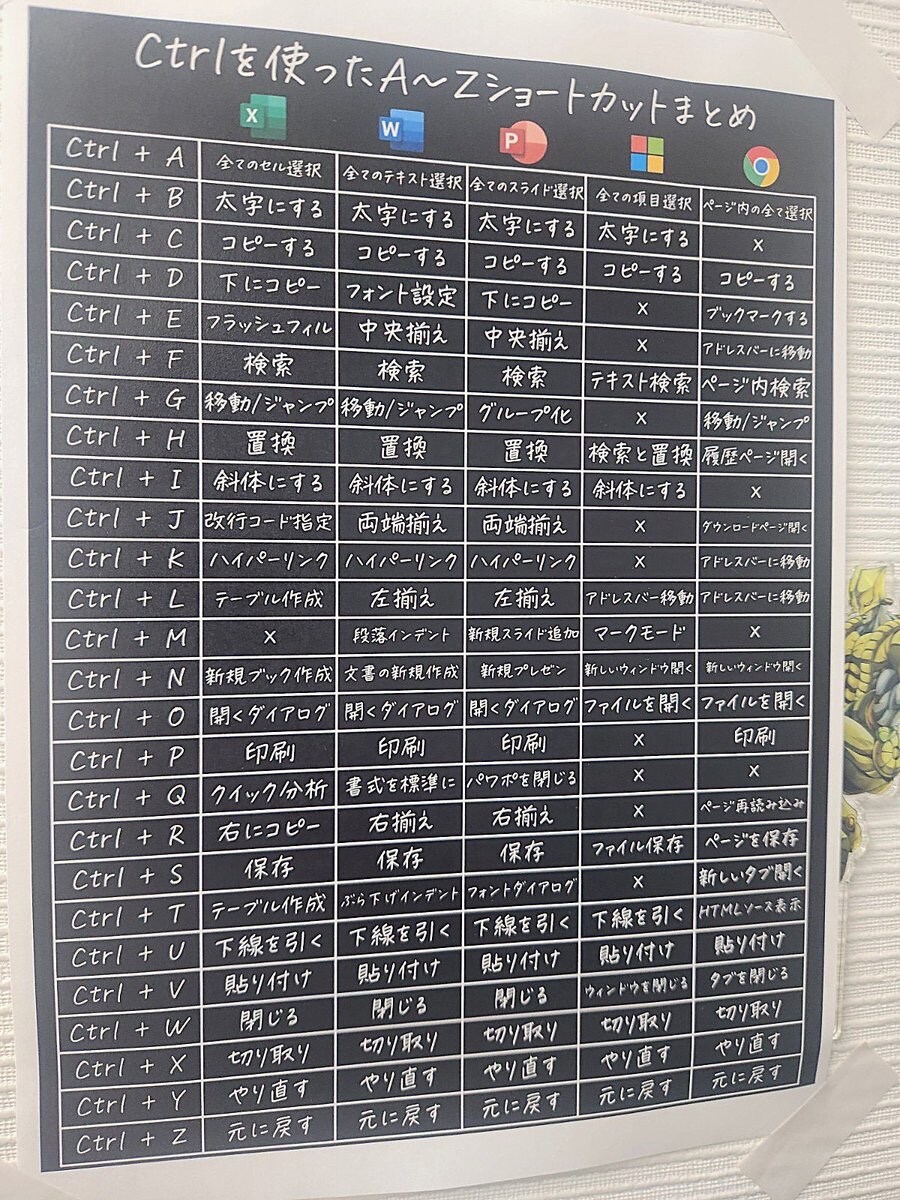 Ctrlを使ったA〜Zショートカットまとめ
X W P
Ctrl + A 全てのセル選択 全てのテキスト選択 全てのスライド選択 全ての項目選択 ページ内の全て選択
Ctrl + B 太字にする 太字にする 太字にする 太字にする x
Ctrl + C コピーする コピーする コピーする コピーする コピーする
Ctrl + D 下にコピー フォント設定 下にコピー x ブックマークする
Ctrl + E フラッシュフィル 中央揃え 中央揃え x アドレスバーに移動
Ctrl + F 検索 検索 検索 テキスト検索 ページ内検索
Ctrl + G 移動/ジャンプ 移動/ジャンプ グループ化 x 移動/ジャンプ
Ctrl + H 置換 置換 置換 検索と置換 履歴ページ開く
Ctrl + I 斜体にする 斜体にする 斜体にする 斜体にする x
Ctrl + J 改行コード指定 両端揃え 両端揃え x ダウンロードページ開く
Ctrl + K ハイパーリンク ハイパーリンク ハイパーリンク x アドレスバーに移動
Ctrl + L テーブル作成 左揃え 左揃え アドレスバー移動 アドレスバーに移動
Ctrl + M x 段落インデント 新規スライド追加 マークモード x
Ctrl + N 新規ブック作成 文書の新規作成 新規プレゼン 新しいウィンドウ開く 新しいウィンドウ開く
Ctrl + O 開くダイアログ 開くダイアログ 開くダイアログ ファイルを開く ファイルを開く
Ctrl + P 印刷 印刷 印刷 x 印刷
Ctrl + Q クイック分析 書式を標準に パワポを閉じる x x
Ctrl + R 右にコピー 右揃え 右揃え x ページ再読み込み
Ctrl + S 保存 保存 保存 ファイル保存 ページを保存
Ctrl + T テーブル作成 ぶら下げインデント フォントダイアログ x 新しいタブ開く
Ctrl + U 下線を引く 下線を引く 下線を引く 下線を引く HTMLソース表示
Ctrl + V 貼り付け 貼り付け 貼り付け 貼り付け 貼り付け
Ctrl + W 閉じる 閉じる 閉じる ウィンドウを閉じる タブを閉じる
Ctrl + X 切り取り 切り取り 切り取り 切り取り 切り取り
Ctrl + Y やり直す やり直す やり直す やり直す やり直す
Ctrl + Z 元に戻す 元に戻す 元に戻す 元に戻す 元に戻す